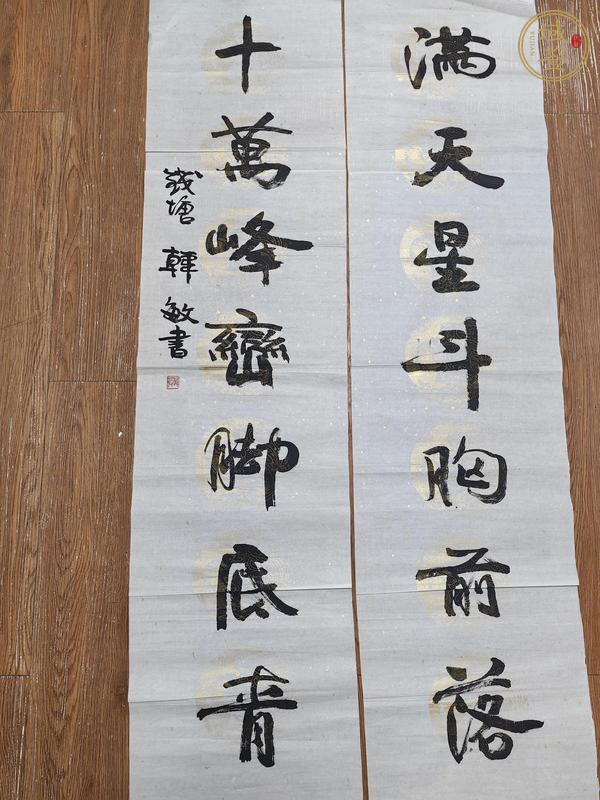 满天星斗胸前落
十萬峰巒脚底青
錢塘 韓敏書